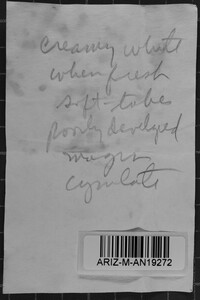 creamy white
when fresh
soft - tubes
poorly developed
margin
cyanlate
ARIZ-M-AN19272